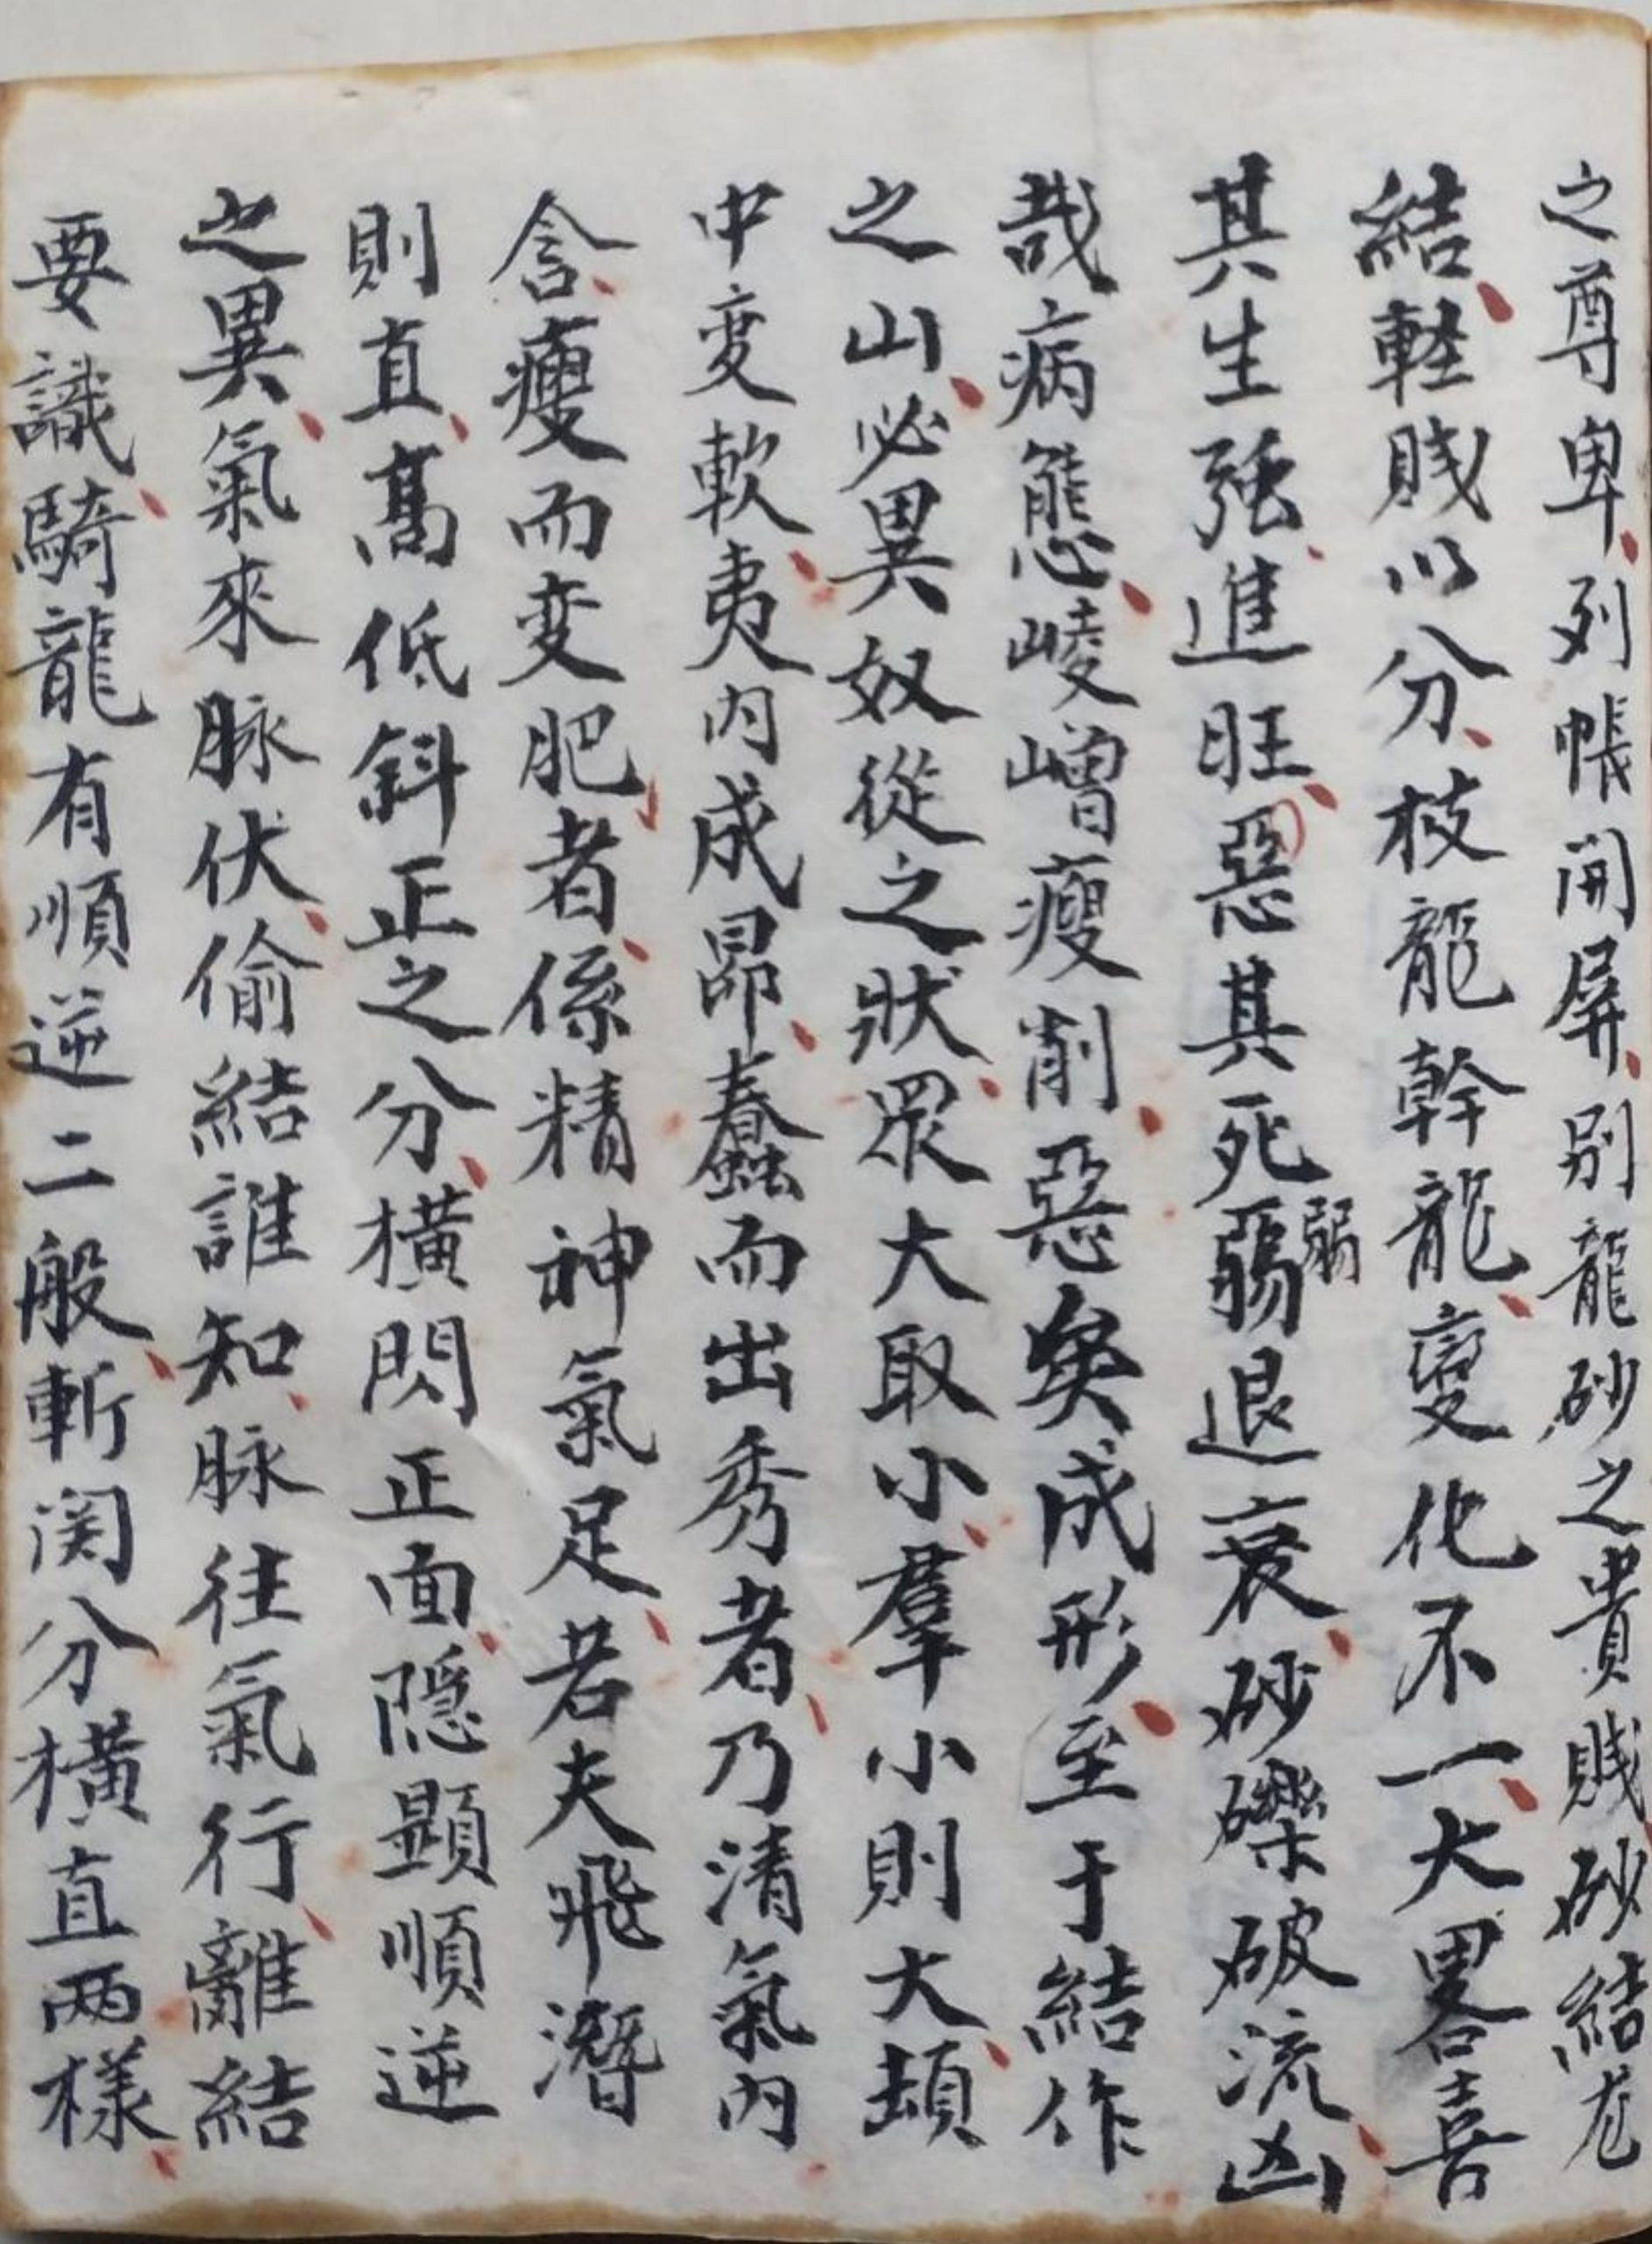 之尊卑列帳開屏別龍砂之貴賤砂結尨
結軽賎以分枝龍幹龍變化不一大畧喜
其生强進旺惡其死弱弱退衰砂礫破流凶
哉病態崚嶒瘦削惡矣成形至于結作
之山必異奴從之狀眾大取小羣小則大頡
中変軟夷内成昂蠢而出秀者乃清氣内
含瘦而变肥者係精神氣足若夫飛潛
則直高低斜正之分横閃正面隠顕順逆
之異氣來脉伏偷結誰知脉往氣行離結
要識騎龍有順逆二般斬関分橫直两樣